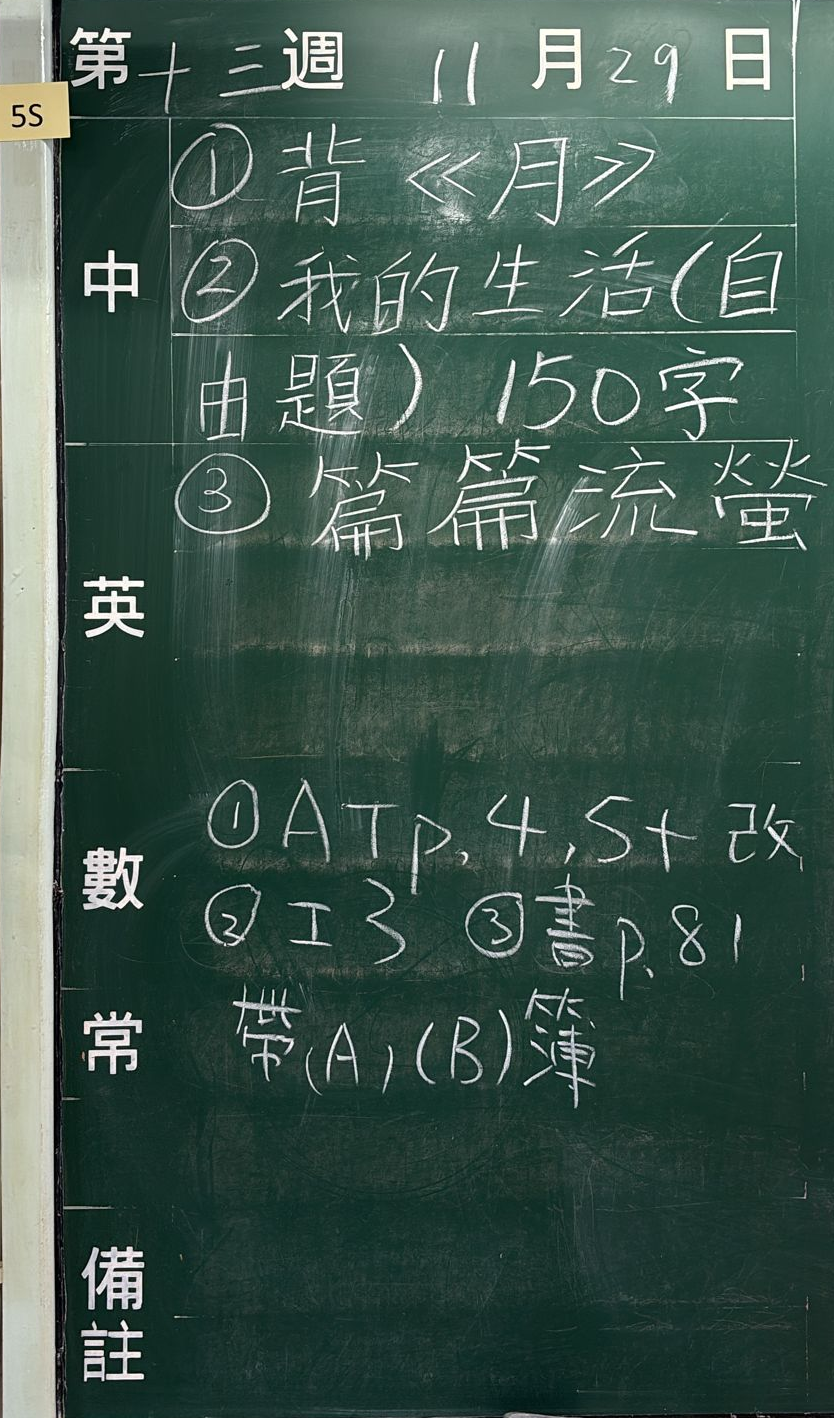 第十三週 11月29日
5S
中
①背《月》
②我的生活(自
由題) 150字
③篇篇流螢
英
數
①AT p.4,5+改
②工3 ③書p.81
常
帶(A),(B)簿
備註